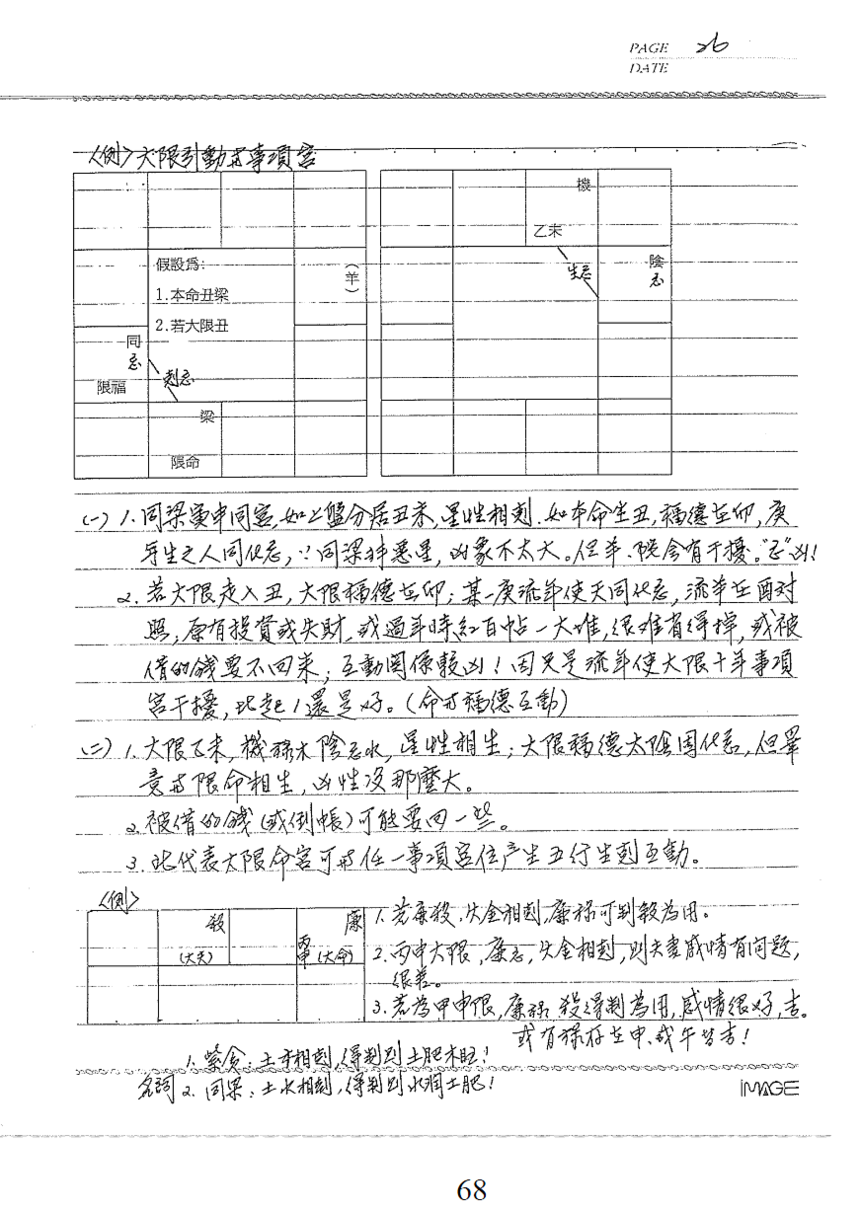 PAGE 26
DATE
〈例〉大限引動其事項宮
機
乙未
假設為:
1.本命丑梁
2.若大限丑
(羊)
生忌
陰
忌
同
忌
限福
剋忌
梁
限命
(一) 1.同梁寅申同宮,如上盤分居丑未,星性相剋.如本命坐丑,福德在卯,庚
年生之人同化忌,∵同梁非惡星,凶象不太大。但羊、陀會有干擾。"忌"凶!
2.若大限走入丑,大限福德在卯;某一庚流年使天同化忌,流羊在酉對
照,原有投資或失財,或過年時紅白帖一大堆,很難省得掉,或被
借的錢要不回來;互動關係較凶!因只是流年使大限十年事項
宮干擾,比起1還是好。(命與福德互動)
(二) 1.大限乙未,機祿木陰忌水,星性相生;大限福德太陰因化忌,但畢
竟與限命相生,凶性沒那麼大。
2.被借的錢(或倒帳)可能要回一些。
3.此代表大限命宮可與任一事項宮位产生五行生剋互動。
〈例〉
殺
(大夫)
廉
丙申 (大命)
1.若廉殺,火金相剋,廉祿可制殺為用。
2.丙申大限,廉忌,火金相剋,則夫妻感情有问題,
很差。
3.若為甲申限,廉祿,殺得制為用,感情很好,吉。
或有祿存在申、或午皆吉!
1.紫貪:土木相剋,得制則土肥木旺!
名詞 2.同梁:土水相剋,得制則水润土肥!
IMAGE
68